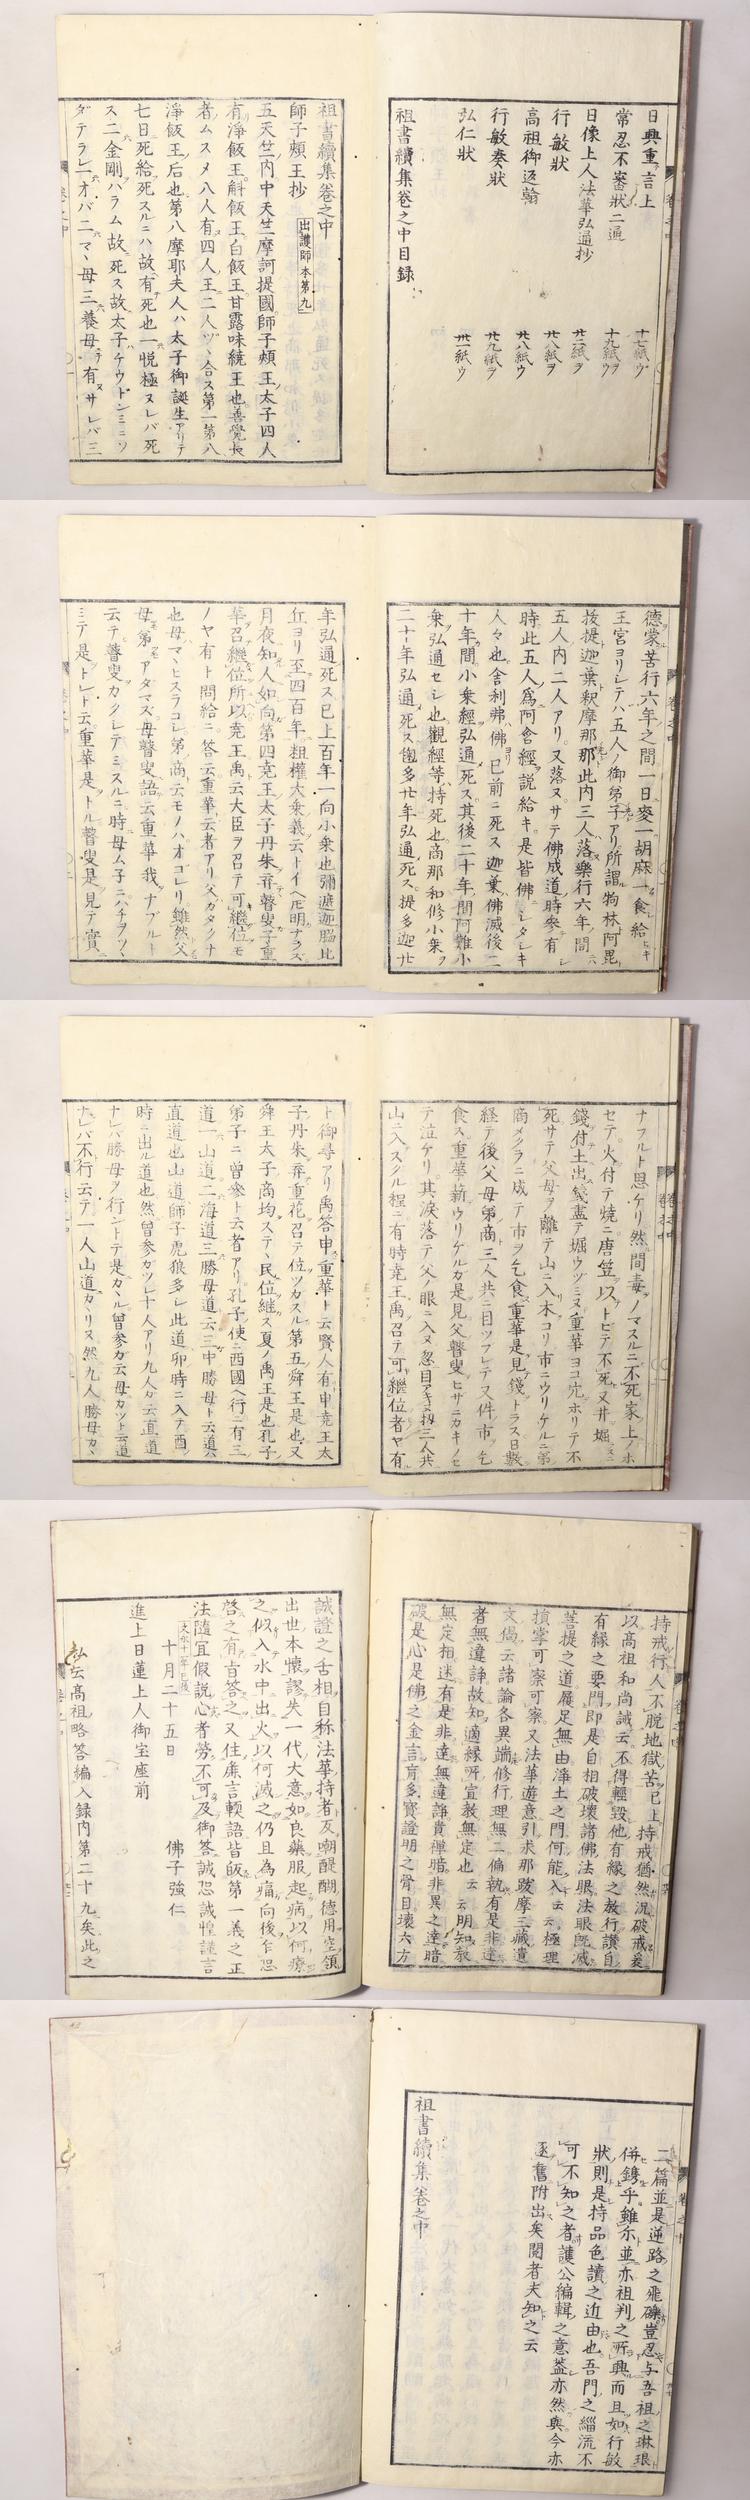 日興重言上 十七紙ウ
常忍不審狀二通 十九紙ウ
日像上人法華弘通抄 廿二紙ヲ
行敏狀 廿八紙ヲ
高祖御返翰 廿八紙ウ
行敏奏狀 廿九紙ヲ
弘仁狀 卅一紙ウ
祖書續集卷之中目録
祖書續集卷之中
師子頰王抄 出護師本第九
五天竺内中天竺摩訶提國師子頰王太子四人
有淨飯王斛飯王白飯王甘露味統王也善覺長
者ムスメ八人有四人王二人ツヽ合ス第一第八
淨飯王后也第八摩耶夫人ハ太子御誕生アリテ
七日死給死スルニハ故有死也一悦極ヌレバ死
ス二金剛ハラム故死ス故太子チウドンミニソ
ダテラレオバニマヽ母三養母有サレバ三
德蒙苦行六年之間一日麥一胡麻一食給ヒキ
王宮ヨリシテハ五人ノ御弟子アリ所謂拘林阿毘
抜提迦葉釈摩那那此内三人落樂行六年間
五人内二人アリ又落ヌサテ佛成道時參有
時此五人爲阿含經説給キ是皆佛ニシタシキ
人々也舍利弗佛已前ニ死ス迦葉佛滅後二
十年間小乗經弘通死ス其後二十年間阿難小
乗弘通セシ也觀經等持死也商那和修小乗ヲ
二十年弘通死ス匊多廿年弘通死ス提多迦廿
年弘通死ス已上百年一向小乗也彌遮迦脳比
丘ヨリ至四百年粗權大乗義云トイヘ圧明ナラズ
月夜知人如向第四堯王太子丹朱弃瞽叟子重
華召繼位所以堯王禹云大臣ヲ召テ可繼位モ
ノヤ有ト問給ニ答云重華云者アリ父ガタクナ
也母マヽヒスラコレ弟商云モノハオコレリ雖然父
母弟アタマズ母瞽叟語云重華我ヲナブルト
云テ瞽叟カクレテミスルニ時母ム子ニハチヲツヽ
ミテ是トレト云重華是ヲトル瞽叟是見テ實ニ
ナフルト思ケリ然間毒ヲノマスルニ不死家上ノホ
セテ火付テ焼ニ唐笠以トビテ不死又井堀
錢付土出錢盡テ堀ウヅミヌ重華ヨコ宂ホリテ不
死サテ父母ヲ離テ山ニ入木コリ市ニウリケルニ弟
商メクラニ成テ市ヲ乞食重華是見錢トラス日數
経テ後父母弟商三人共ニ目ツブレテ又件市乞
食ス重華薪ウリケルガ是見父瞽叟ヒザニカキノセ
テ泣ケリ其涙落テ父ノ眼ニ入ヌ忽目アキヌ扨三人共
山ニ入スクル程ニ有時堯王禹召テ可繼位者ヤ有
ト御尋アリ禹答申重華ト云賢人有申堯王太
子丹朱弃重花召テ位ツカスル第五舜王是也又
舜王太子商均ステヽ民位継ス夏ノ禹王是也孔子
弟子ニ曾參ト云者アリ孔子使ニ西國ヘ行ニ有三
道一山道二海道三勝母道云三中勝母ト云道ハ
直道也山道師子虎狼多シ此道卯時ニ入テ酉
時ニ出ル道也然曾参カツレ十人アリ九人ガ云直道
ナレバ勝母ヲ行ントテ是カヽル曾參ガ云母カツト云道
ナレバ不行云テ一人山道カヽリヌ然九人勝母カヽ
持戒行人不脱地獄苦已上持戒猶然況破戒爰
以高祖和尚誡云不得輕毀他有縁之敎行讚自
有縁之要門即是自相破壞諸佛法眼法眼既滅
菩提之道履足無由淨土之門何能入云云極理
損掌可察可察又法華遊意引求那跋摩三藏遺
文偈云諸論各異端修行理無二偏執有是非達
者無違諍故知適縁所宜教無定也云云明知教
無定相迷有是非達無違諍貴禪暗非異之達暗
破是心是佛之金言育多寶證明之骨目壞六方
誠證之舌相自称法華持者反嘲醍醐德用空領
出世本懷謬失一代大意如良藥服起病以何療
之似入水中出火以何滅之仍且為痛向後乍恐
啓之有旨答之又住麁言輭語皆皈第一義之正
法隨宜假説心者勞不可及御答誠恐誠惶謹言
十月二十五日 佛子強仁
進上日蓮上人御宝座前
弘云高祖略答編入録内第二十九矣此之
二篇並是逆路之飛礫豈忍与吾祖之琳琅
併鐫乎雖尓並亦祖判之所興而且如行敏
狀則是持品色讀之近由也吾門之緇流不
可不知之者護公編輯之意蓋亦然與今亦
逐舊附出矣閲者夫知之云
祖書續集卷之中